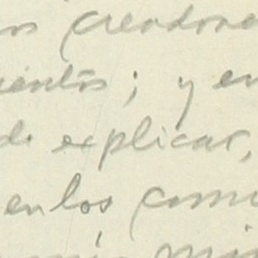 os creadore
ientos; y en
de explicar,
en los comi